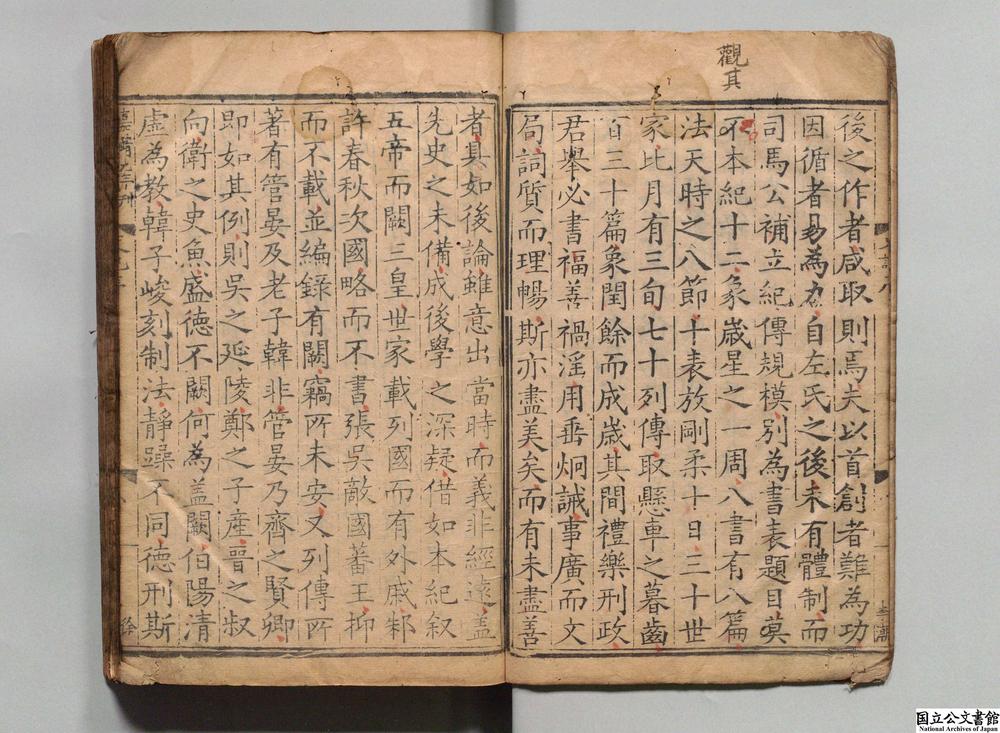 觀其
後之作者咸取則焉夫以首創者難為功
因循者易為力自左氏之後未有體制而
司馬公補立紀傳規模別為書表題目莫
不本紀十二象歲星之一周八書有八篇
法天時之八節十表放剛柔十日三十世
家比月有三旬七十列傳取懸車之暮齒
百三十篇象閏餘而成歲其間禮樂刑政
君舉必書福善禍淫用垂炯誡事廣而文
局詞質而理暢斯亦盡美矣而有未盡善
者具如後論雖意出當時而義非經遠蓋
先史之未備成後學之深疑借如本紀叙
五帝而闕三皇世家載列國而有外戚邾
許春秋次國略而不書張吳敵國蕃王抑
而不載並編錄有闕竊所未安又列傳所
著有管晏及老子韓非管晏乃齊之賢卿
即如其例則吳之延陵鄭之子產晉之叔
向衛之史魚盛德不闕何為蓋闕伯陽清
虛為教韓子峻刻制法靜躁不同德刑斯
国立公文書館
National Archives of Japan